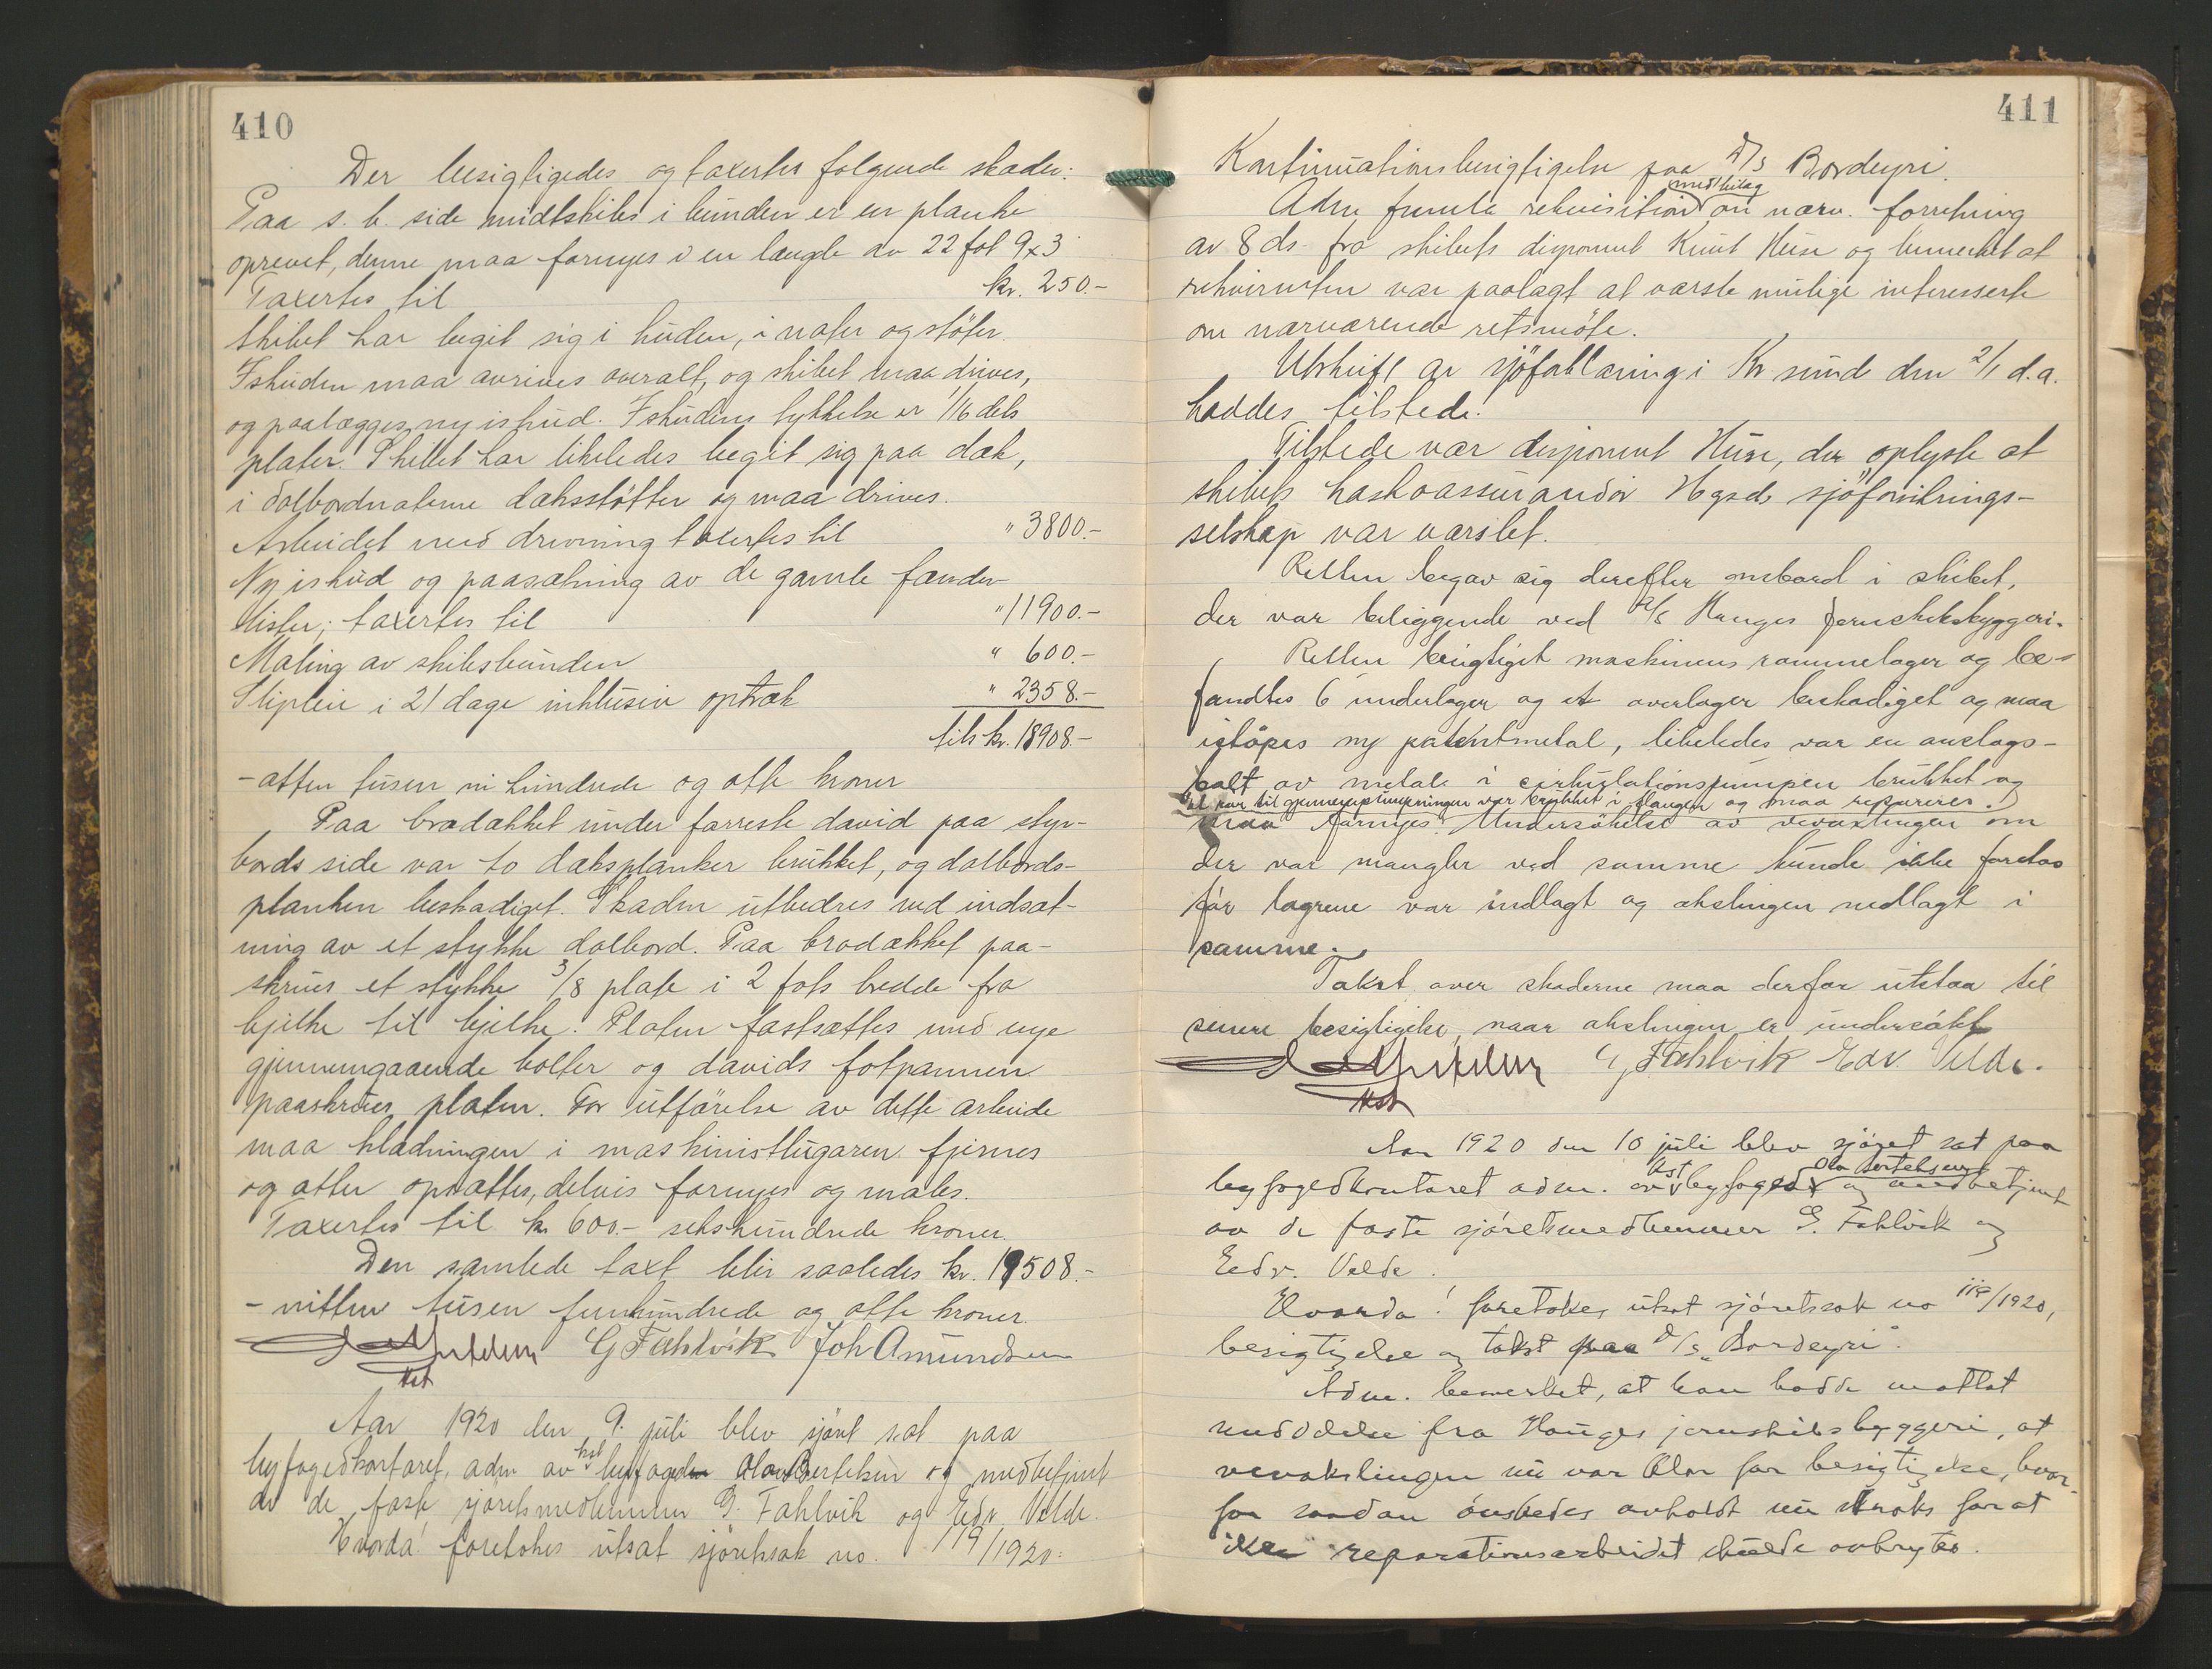 410
Der besigtigedes og taxertes følgende skader:
Paa s. b. side midtskibs i bunden er en planke
oprevet, denne maa fornyes i en længde av 22 fot 9x3
Taxertes til kr. 250.-
Skibet har begit sig i huden, i nater og støter.
Ishuden maa avrives overalt, og skibet maa drives,
og paalægges ny ishud. Ishudens tykkelse er 1/16 dels
plater. Skibet har likeledes begit sig paa dæk,
i dolbordnaterne dæksstøtter og maa drives.
Arbeidet med drivning taxertes til " 3800.-
Ny ishud og paasætning av de gamle fender-
lister; taxertes til " 11900.-
Maling av skibsbunden " 600.-
Slipleie i 21 dage inklusiv optræk " 2358.-
tils kr. 18908.-
- atten tusen ni hundrede og otte kroner
Paa brodækket under forreste david paa styr-
bords side var to dæksplanker brukket, og dolbords-
planken beskadiget. Skaden utbedres ved indsæt-
ning av et stykke dolbord. Paa brodækket paa-
skrues et stykke 3/8 plate i 2 fots bredde fra
bjelke til bjelke. Platen fastsættes med nye
gjennemgaaende bolter og davids fotpannen
paaskrues platen. For utførelse av dette arbeide
maa klædningen i maskinistlugaren fjernes
og atter opsættes, delvis fornyes og males.
Taxertes til kr. 600.- sekshundrede kroner.
Den samlede taxt blir saaledes kr. 19508.-
- nitten tusen femhundrede og otte kroner.
G Fahlvik Joh Amundsen
kst
Aar 1920 den 9. juli blev sjøret sat paa
byfogedkontoret, adm av kst byfoged Olav Bertelsen og medbetjent
av de faste sjøretsmedlemmer G. Fahlvik og Edv. Velde.
Hvorda! foretokes utsat sjøretssak no. 119/1920:
411
Kontinuationsbesigtigelse paa D/S Bordeyri.
Adm fremla rekvisition med bilag om nærv. forretning
av 8 ds. fra skibets disponent Knut Huse og bemerket at
rekvirenten var paalagt at varsle mulige interesserte
om nærværende retsmøte.
Utskrift av sjøforklaring i Kr sund den 2/1 d.a.
haddes tilstede.
Tilstede var disponent Huse, der oplyste at
skibets kaskoassurandør Hgsds sjøforsikrings-
selskap var varslet.
Retten begav sig derefter ombord i skibet,
der var beliggende ved A/S Hauges jernskibsbyggeri.
Retten besigtiget maskinens rammelager og be-
fandtes 6 underlager og et overlager beskadiget og maa
istøpes ny patentmetal, likeledes var en anslags-
bolt av metal i cirkulationspumpen brukket og
et rør til gjennempumpningen var brukket i flangen og maa repareres.
maa fornyes. Undersøkelse av vevaxlingen om
der var mangler ved samme kunde ikke foretas
før lagrene var indlagt og akslingen nedlagt i
samme.
Takst over skaderne maa derfor utstaa til
senere besigtigelse, naar akslingen er undersøkt
G Fahlvik Edv. Velde.
kst
Aar 1920 den 10 juli blev sjøret sat paa
byfogedkontoret adm. av kst byfoged Olav Bertelsen og medbetjent
av de faste sjøretsmedlemmer G. Fahlvik og
Edv. Velde.
Hvorda! foretokes utsat sjøretssak no 119/1920,
besigtigelse og takst paa D/S "Bordeyri".
Adm. bemerket, at han hadde mottat
meddelelse fra Hauges jernskibsbyggeri, at
vevakslingen nu var klar for besigtigelse, hvor-
for saadan ønskedes avholdt nu straks for at
ikke reparationsarbeidet skulde avbrytes.